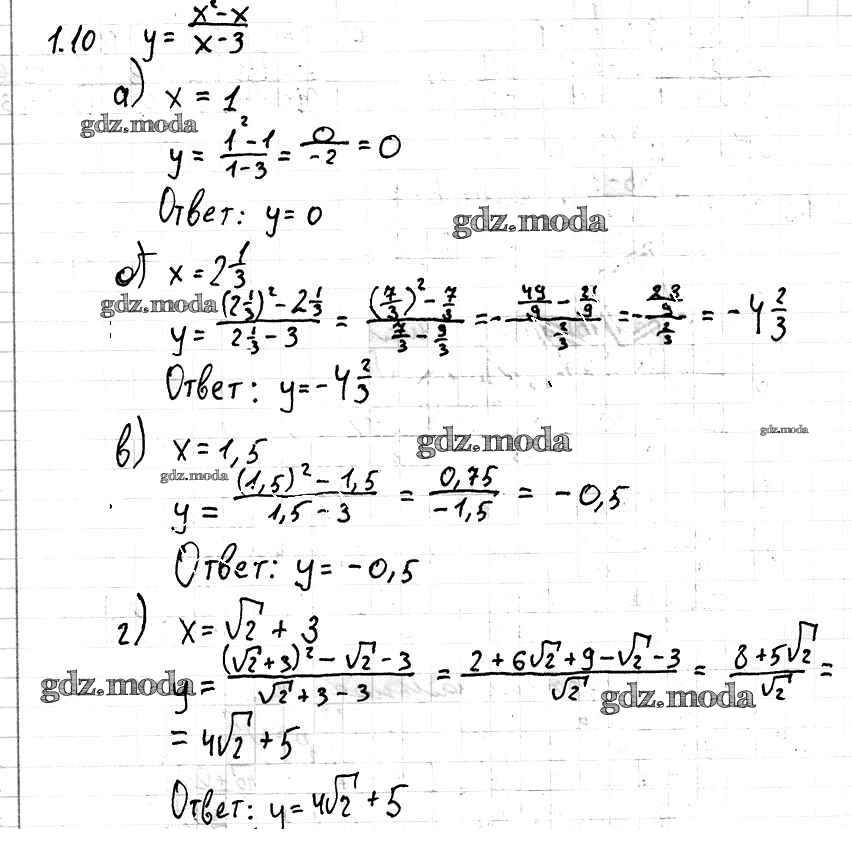 1.10 y = (x² - x)/(x - 3)
а) x = 1
gdz.moda
y = (1² - 1)/(1 - 3) = 0/(-2) = 0
Ответ: y = 0
gdz.moda
б) x = 2 1/3
gdz.moda
y = ((2 1/3)² - 2 1/3)/(2 1/3 - 3) = ((7/3)² - 7/3)/(7/3 - 9/3) = -(49/9 - 21/9)/(2/3) = -(28/9)/(2/3) = -4 2/3
Ответ: y = -4 2/3
в) x = 1,5
gdz.moda
gdz.moda
gdz.moda
y = ((1,5)² - 1,5)/(1,5 - 3) = 0,75/(-1,5) = -0,5
Ответ: y = -0,5
г) x = √2 + 3
y = ((√2 + 3)² - √2 - 3)/(√2 + 3 - 3) = (2 + 6√2 + 9 - √2 - 3)/√2 = (8 + 5√2)/√2 =
gdz.moda
gdz.moda
= 4√2 + 5
Ответ: y = 4√2 + 5